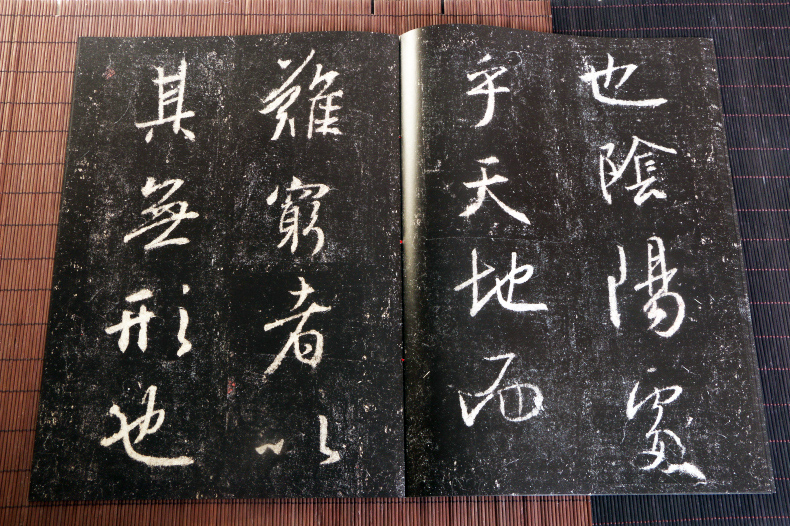 也陰陽處
乎天地而
難窮者以
其無形也